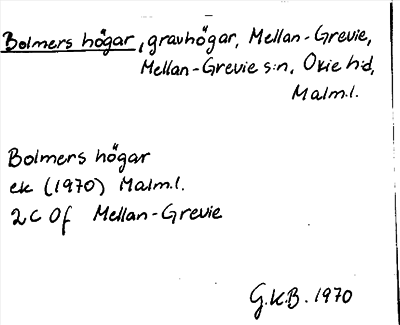 Bolmers högar, gravhögar, Mellan-Grevie,
Mellan-Grevie s:n, Oxie h:d,
Malm.l.
Bolmers högar
ek (1970) Malm.l.
2C 0f Mellan-Grevie
G.K.B. 1970